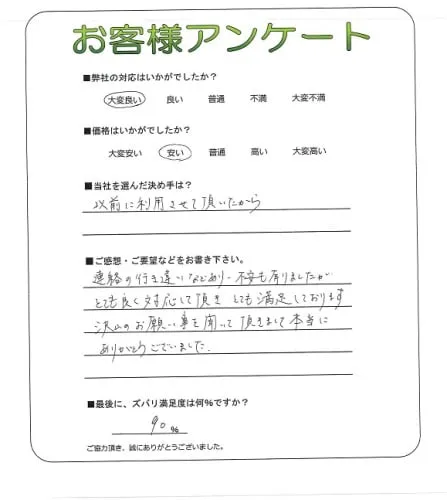 お客様アンケート
■弊社の対応はいかがでしたか？
大変良い 良い 普通 不満 大変不満
■価格はいかがでしたか？
大変安い 安い 普通 高い 大変高い
■当社を選んだ決め手は？
以前に利用させて頂いたから
■ご感想・ご要望などをお書き下さい。
連絡の行き違いなどあり、不安も有りましたが
とても良く対応して頂き とても満足しております
沢山のお願い事を聞いて頂きまして本当に
ありがとうございました.
■最後に、ズバリ満足度は何%ですか？
90 %
ご協力頂き、誠にありがとうございました。